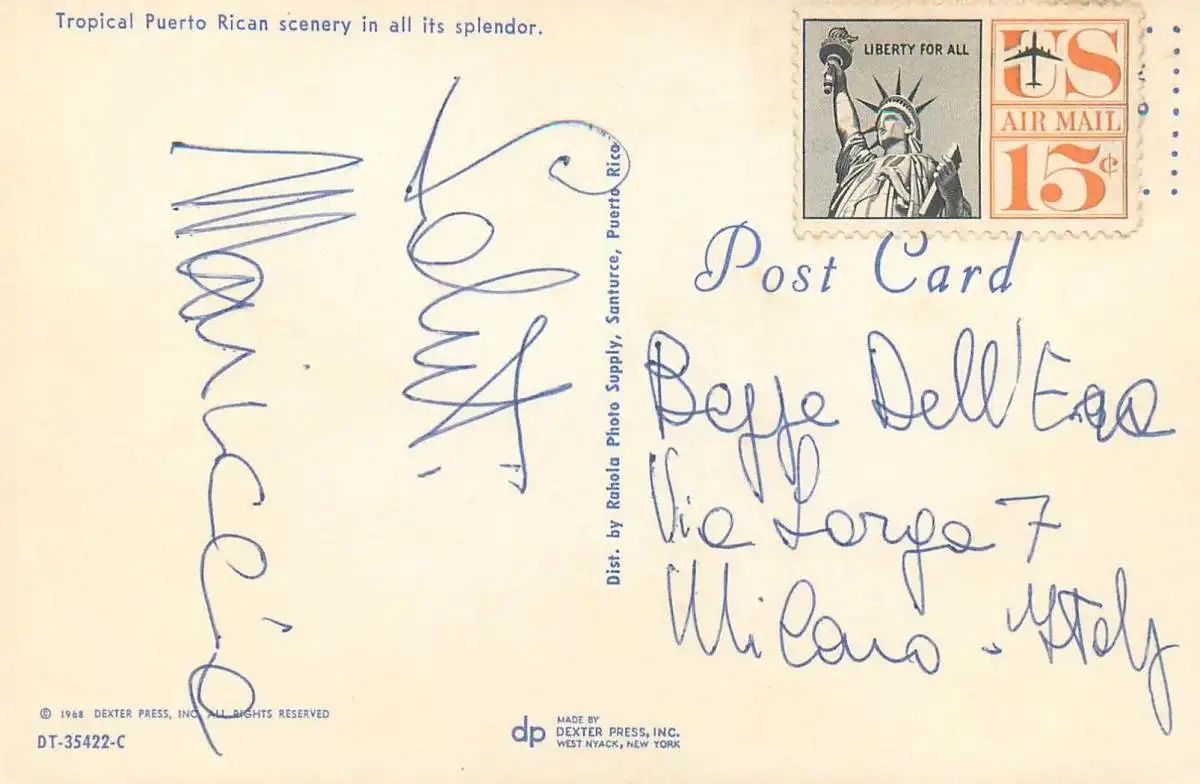 Tropical Puerto Rican scenery in all its splendor.
LIBERTY FOR ALL
US
AIR MAIL
15¢
Post Card
Saluti
Dist. by Rahola Photo Supply, Santurce, Puerto Rico
Beppe Dell'
Via Larga 7
Milano - Italy
© 1968 DEXTER PRESS, INC. ALL RIGHTS RESERVED
DT-35422-C
dp
MADE BY
DEXTER PRESS, INC.
WEST NYACK, NEW YORK